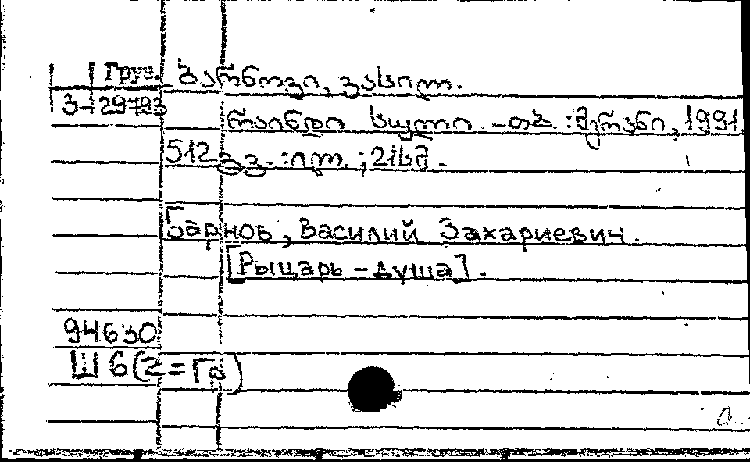 Груз. ბარნოვი, ვასილ.
3-29793
რაინდი სული. -თბ. :მერანი, 1991.
512 გვ. :ილ. ;21სმ.
Барнов, Василий Захариевич.
[Рыцарь - душа].
94630
Ш 6(2=Гр)